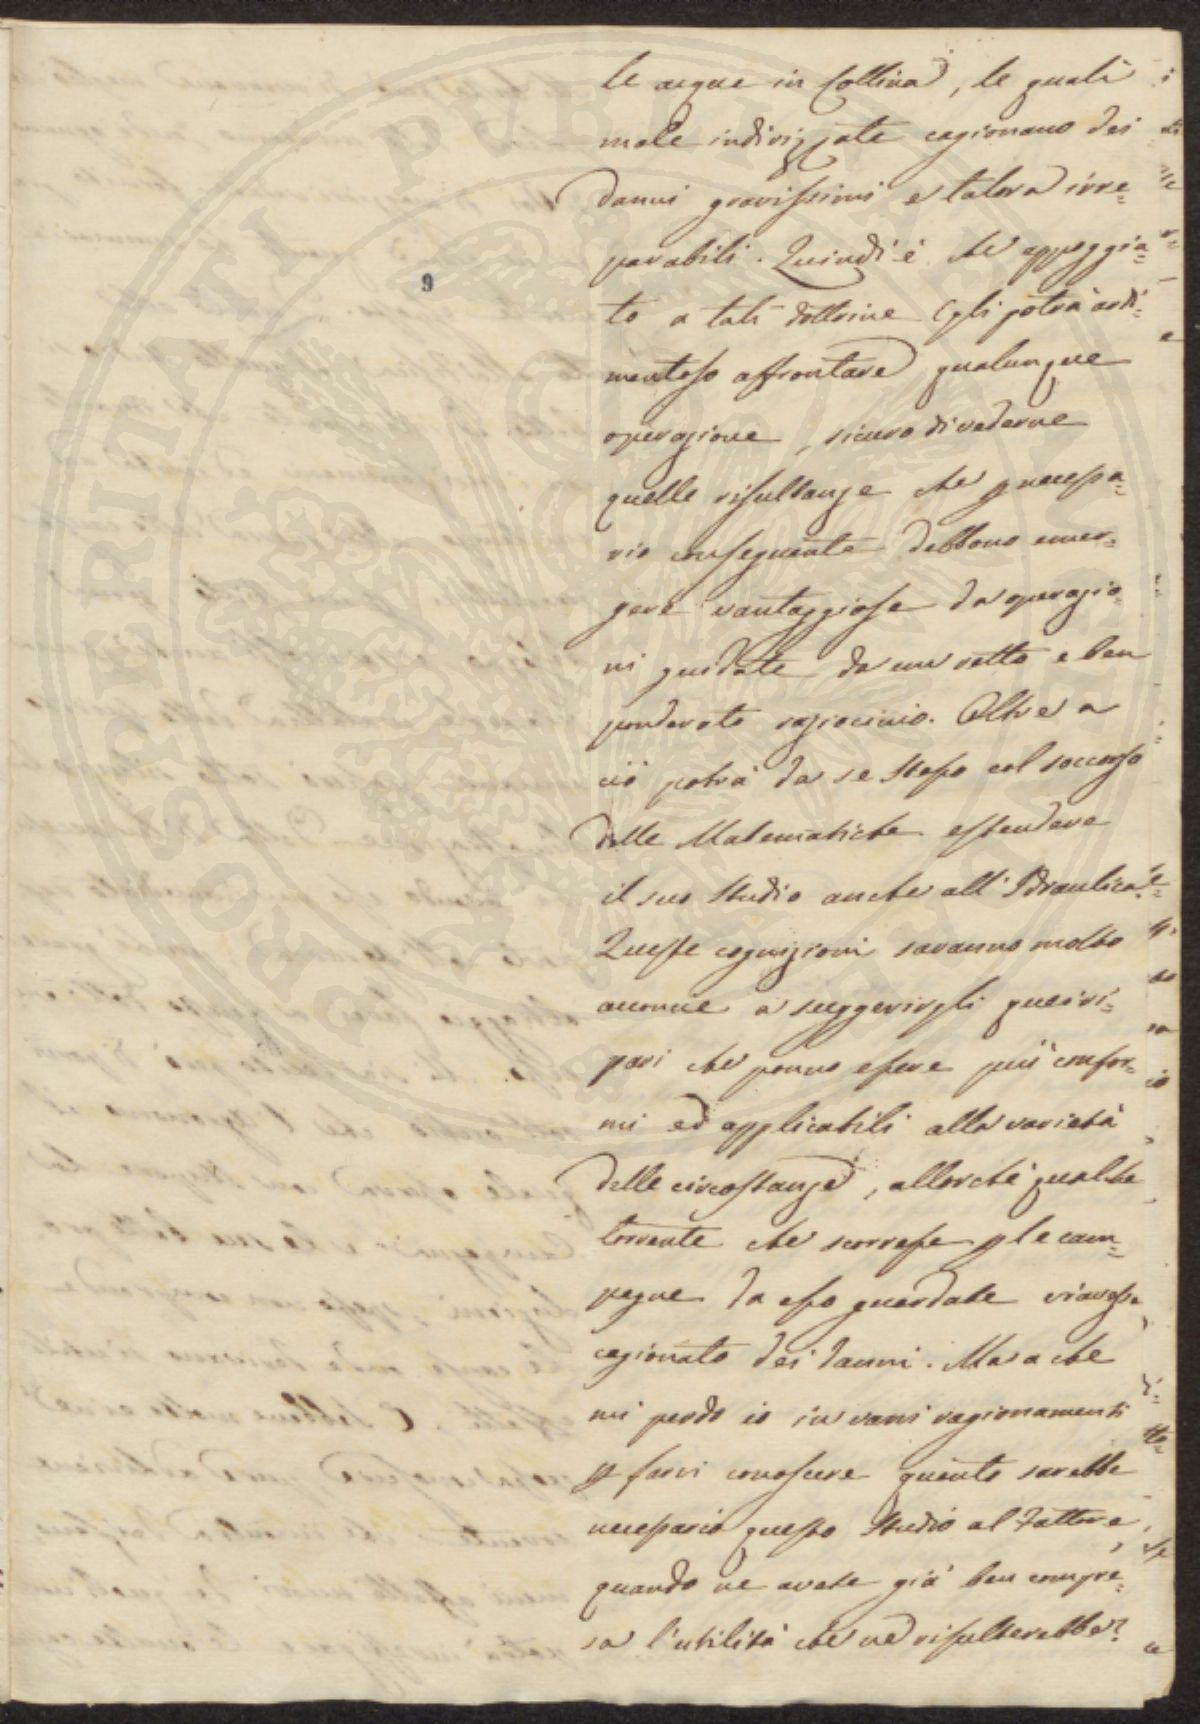 le acque in Collina, le quali
male indirizzate cagionano dei
danni gravissimi e talora irre=
parabili. Quindi è che appoggia=
9
to a tali dottrine Egli potrà ardi=
mentoso affrontare qualunque
operazione, sicuro di vederne
quelle risultanze che p necessa=
rio conseguente debbono emer=
gere vantaggiose da operazio=
ni guidate da un retto e ben
ponderato raziocinio. Oltre a
ciò potrà da se stesso col soccorso
delle Matematiche estendere
il suo studio anche all'Idraulica.
Queste cognizioni saranno molto
acconcie a suggerirgli quei ri=
pari che ponno essere più confor=
mi ed applicabili alla varietà
delle circostanze, allorchè qualche
torrente che scorresse p le cam=
pagne da esso guardate vi avesse
cagionato dei danni. Ma a che
mi perdo io in vani ragionamenti
p farvi conoscere quanto sarebbe
necessario questo studio al Fattore,
quando ne avete già ben compre=
sa l'utilità che ne risulterebbe?
PROSPERITATI PUBLICAE AUGENDAE